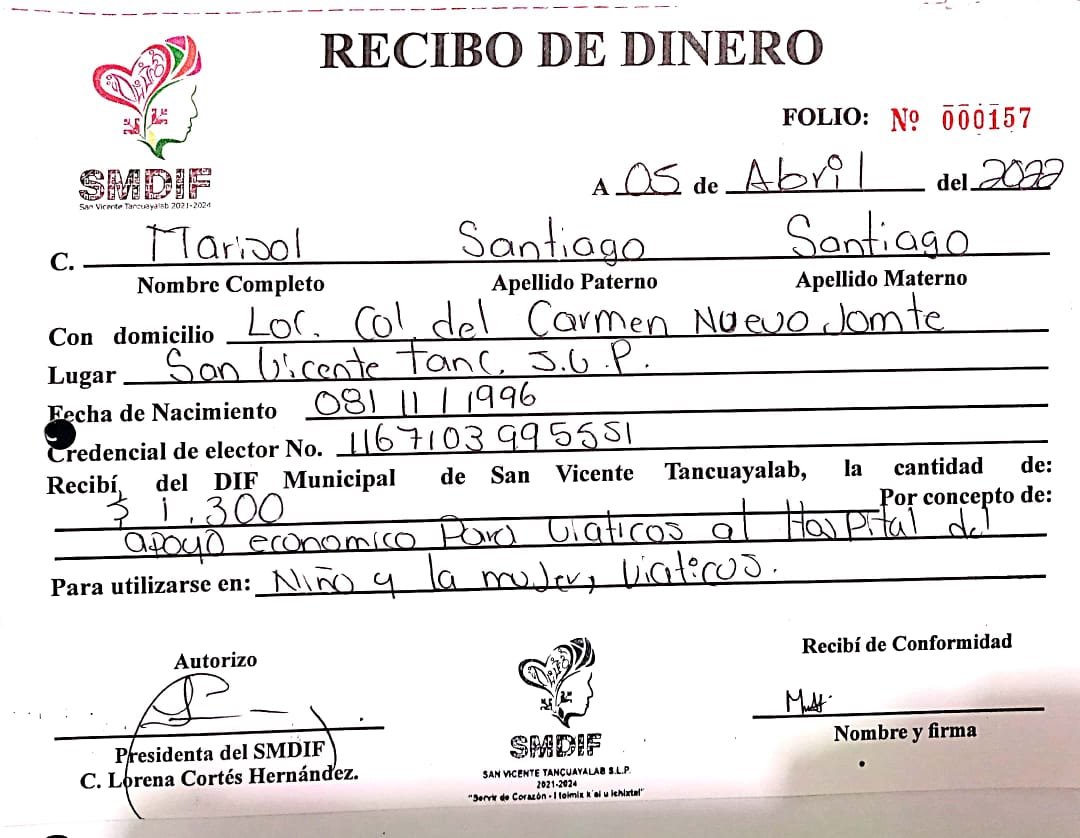 RECIBO DE DINERO
FOLIO: Nº 000157
SMDIF
San Vicente Tancuayalab 2021-2024
A 05 de Abril del 2022
C. Marisol Santiago Santiago
Nombre Completo Apellido Paterno Apellido Materno
Con domicilio Loc. Col. del Carmen Nuevo Jomte
Lugar San Vicente Tanc. S.L.P.
Fecha de Nacimiento 08/ 11 / 1996
Credencial de elector No. 1167103995551
Recibí, del DIF Municipal de San Vicente Tancuayalab, la cantidad de:
$ 1,300 Por concepto de:
apoyo economico Para Viaticos al Hospital del
Para utilizarse en: Niño y la mujer, Viaticos.
Autorizo
Recibí de Conformidad
Presidenta del SMDIF
C. Lorena Cortés Hernández.
Nombre y firma
SMDIF
SAN VICENTE TANCUAYALAB S.L.P.
2021-2024